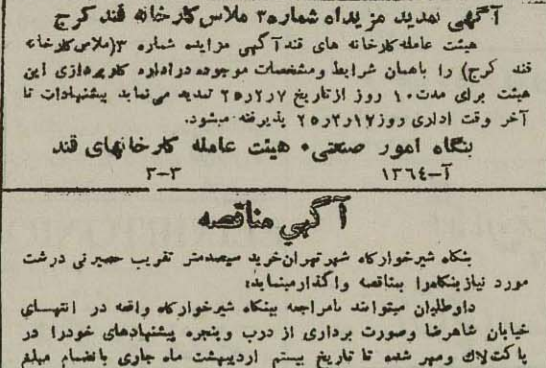 آگهی تمدید مزیداه شماره ۳ ملاس کارخانه قند کرج
هیئت عامله کارخانه های قند آگهی مزایده شماره ۳ (ملاس کارخانه
قند کرج) را باهمان شرایط ومشخصات موجوده در اداره کارپردازی این
هیئت برای مدت ۱۰ روز از تاریخ ۷ر۲ر۲۵ تمدید می نماید پیشنهادات تا
آخر وقت اداری روز ۱۷ر۲ر۲۵ پذیرفته میشود.
بنگاه امور صنعتی۰ هیئت عامله کارخانهای قند
آ-۱۳۶۴ ۳-۳
آگهی مناقصه
بنگاه شیرخوارگاه شهر تهران خرید سیصد متر تقریب حصیر نی درشت
مورد نیاز بنگاه را بمناقصه واگذار مینماید:
داوطلبان میتوانند بامراجعه ببنگاه شیرخوارگاه واقعه در انتهای
خیابان شاهرضا وصورت برداری از درب وپنجره پیشنهادهای خود را در
پاکت لاك ومهر شده تا تاریخ بیستم اردیبهشت ماه جاری بانضمام مبلغ